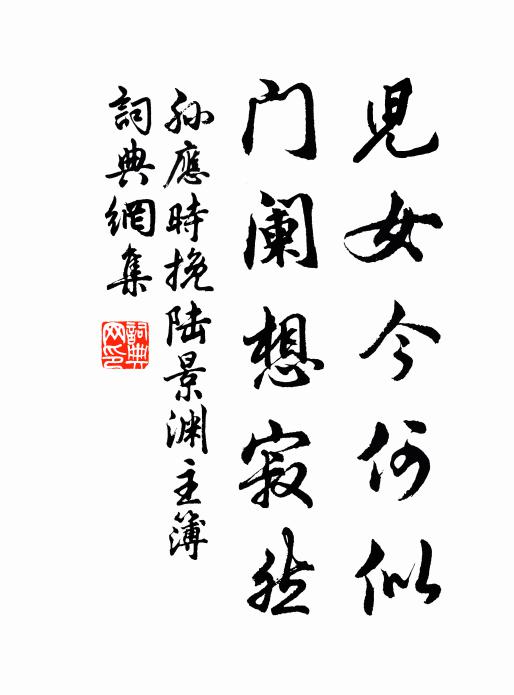 兒女今何似
门阑想寂然
孙應時挽陆景渊主簿
詞典網集
詞典网印